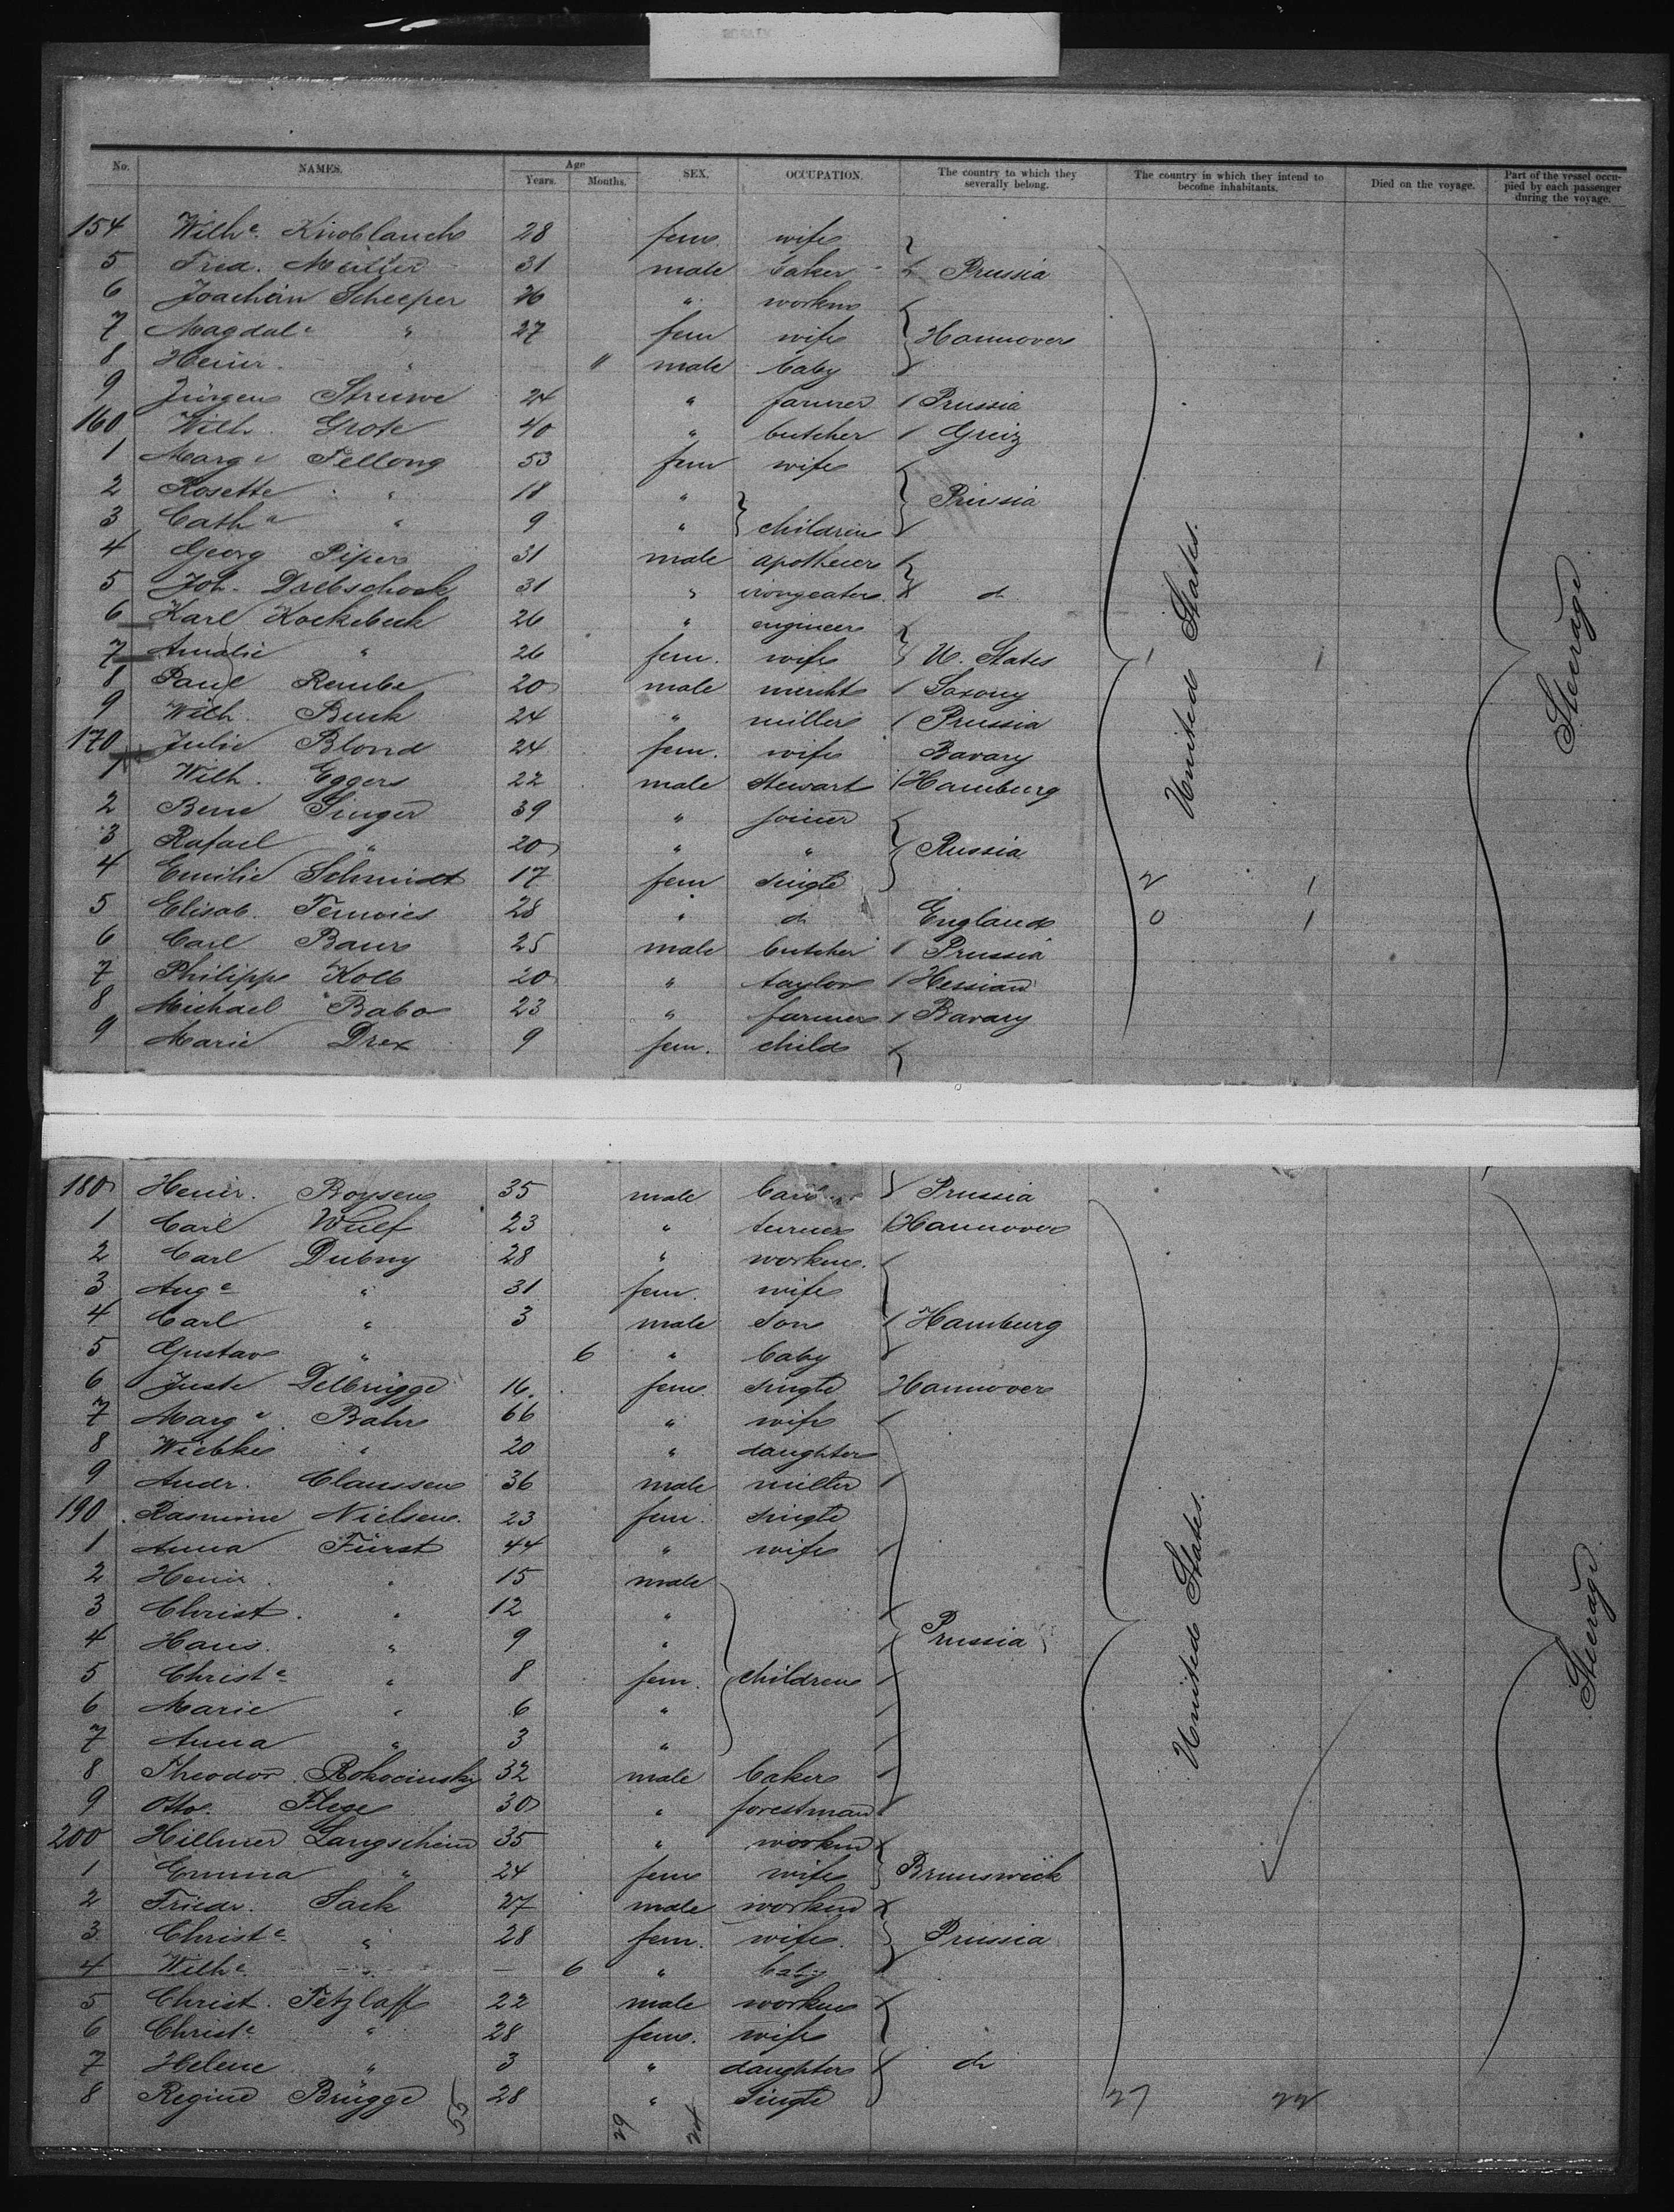 No. NAMES. Age Years. Months. SEX. OCCUPATION. The country to which they severally belong. The country in which they intend to become inhabitants. Died on the voyage. Part of the vessel occupied by each passenger during the voyage.
154 Wilhe. Knoblauch 28 fem. wife
5 Fred. Müller 31 male baker Prussia
6 Joachim Scheeper 26 " workm
7 Magdale " 27 fem wife Hannover
8 Heinr. " male baby
9 Jürgen Struwe 24 " farmer Prussia
160 Wilh. Grote 40 " butcher Greiz
1 Marge Fellong 53 fem wife
2 Rosette " 18 " Prussia
3 Cathe " 9 " children
4 Georg Piper 31 male
5 Joh. 31 " d
6 Karl Kockebeck 26 " engineer
7 Amalie " 26 fem. wife U. States 1 1
8 Paul Rembe 20 male mercht Saxony
9 Wilh. Buck 24 " miller Prussia
170 Julie Blond 24 fem. wife Bavary
1 Wilh. Eggers 22 male Stewart Hamburg
2 Singer 39 " joiner
3 Rafael " 20 " " Russia
4 Emilie Schmidt 17 fem single 2 1
5 Elisab. 28 " d England 0 1
6 Carl Baur 25 male butcher Prussia
7 Philipp Kolb 20 " taylor Hessian
8 Michael Babo 23 " farmer Bavary
9 Marie Drex 9 fem. child
United States.
Steerage
180 Heinr. Boysen 35 male Prussia
1 Carl Wulf 23 " turner Hannover
2 Carl Dubny 28 " workm.
3 Auge " 31 fem. wife
4 Carl " 3 male Son Hamburg
5 Gustav " 6 " baby
6 Juste Delbrügge 16. fem. single Hannover
7 Marge. Bahr 66 " wife
8 Wiebke " 20 " daughter
9 Andr. Claussen 36 male miller
190 Rasmine Nielsen. 23 fem. single
1 Anna Fürst 44 " wife
2 Heinr. " 15 male
3 Christ. " 12 "
4 Hans. " 9 " Prussia
5 Christe " 8 fem. children
6 Marie " 6 "
7 Anna " 3 "
8 Theodor Rokocinsky 32 male baker
9 Otto. Flege 30 " forestman
200 Hillmer Langscheim 35 " workm
1 Emma " 24 fem wife Brunswick
2 Friedr. Sack 27 male workm
3 Christe " 28 fem. wife. Prussia
4 Wilhe. " — 6 " baby
5 Christ. Tetzlaff 22 male workm
6 Christe " 28 fem. wife
7 Helene " 3 " daughter d
8 Regine Brügge 28 " Single
United States.
Steerage
55 29 27 22